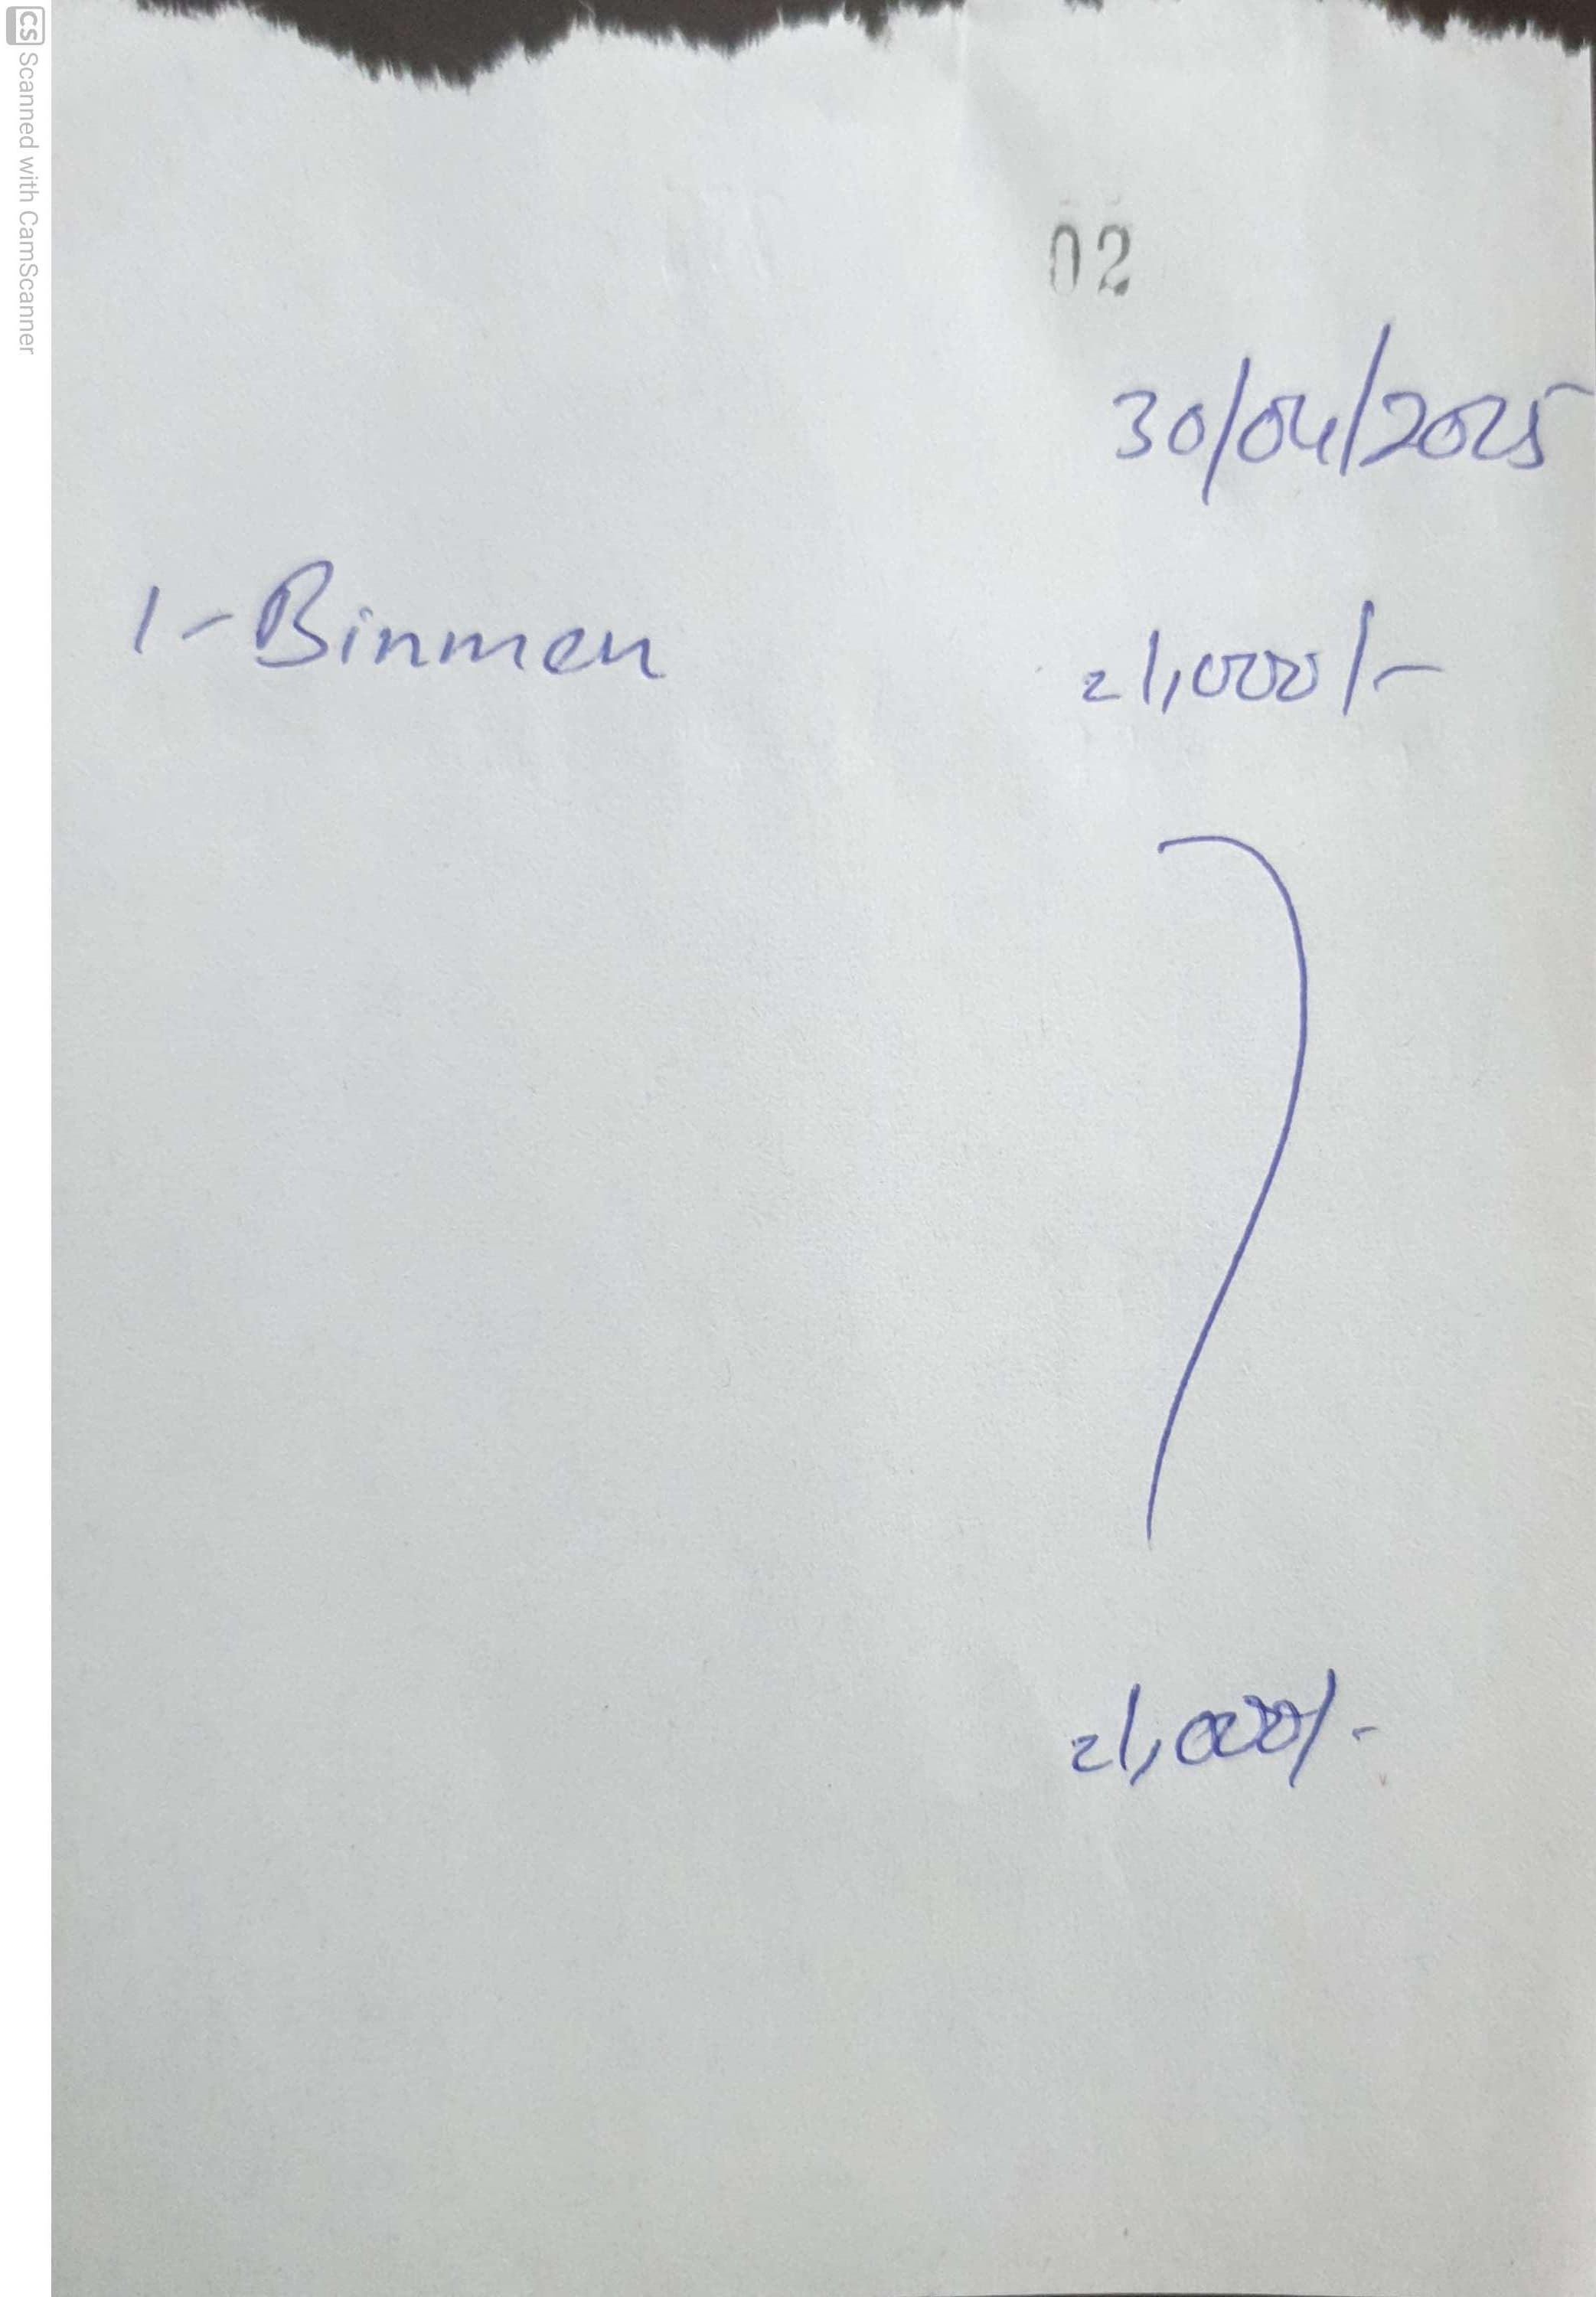 02
30/04/2025
1- Binmen 21,000/-
21,000/-
CS Scanned with CamScanner